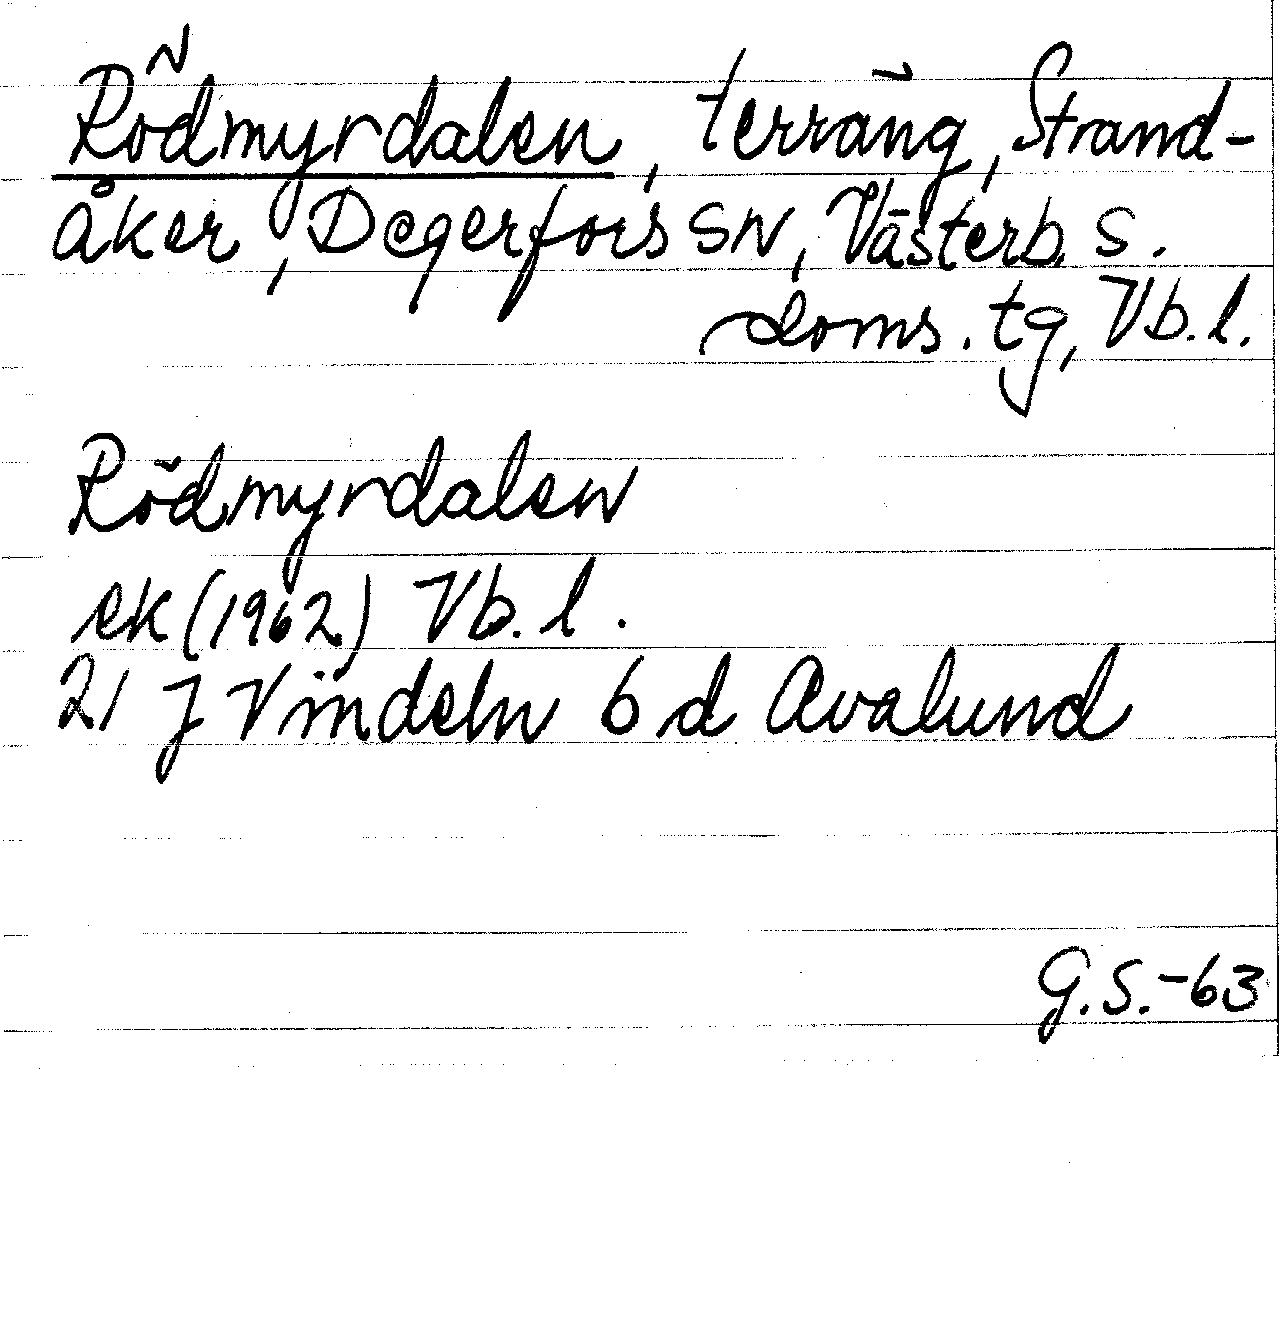 Rödmyrdalen, terräng, Strand-
åker, Degerfors SN, Västerb. S.
doms. tg, Vb. l.
Rödmyrdalen
ek (1962) Vb. l.
21 J Vindeln 6 d Avalund
G.S.-63